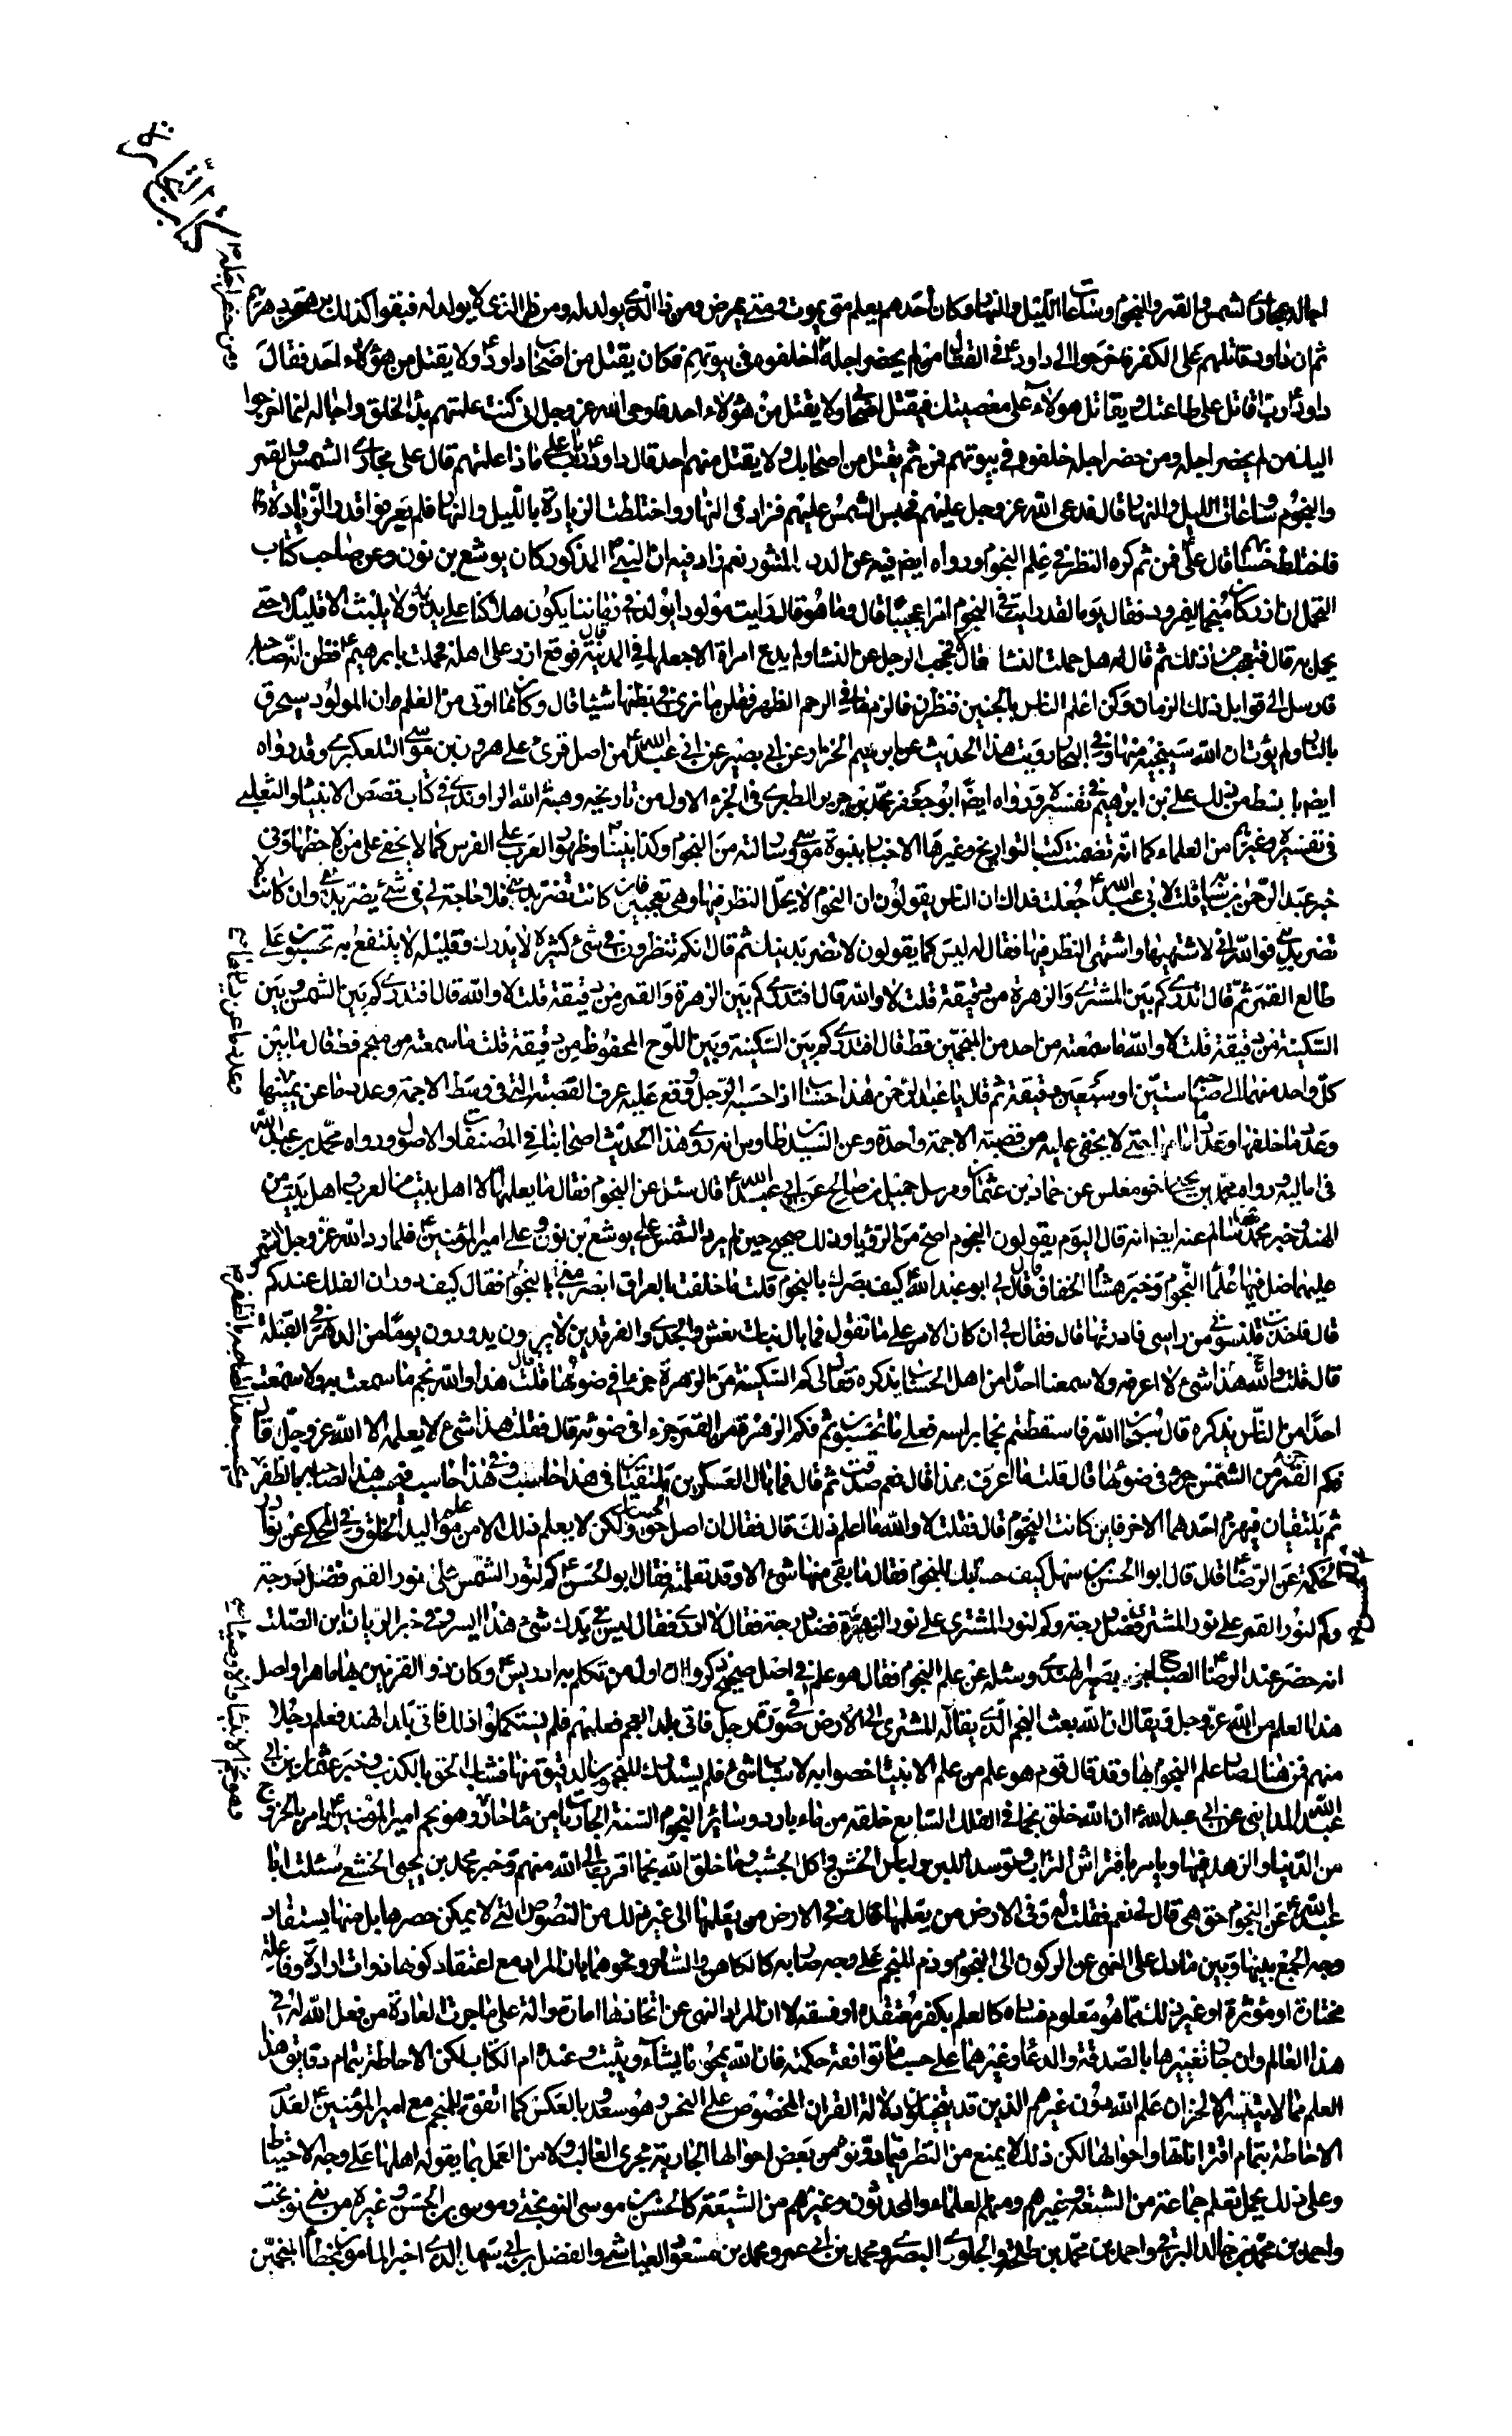 كتاب التجارة
اجاله بمجاري الشمس والقمر والنجوم وساعات الليل والنهار وكان احدهم يعلم متى يموت ومتى يمرض ومن ذا الذي يولد له ومن ذا الذي لا يولد له فبقوا كذلك برهة من دهرهم
ثم ان داود قاتلهم على الكفر فاخرجوا الى داود ع في القتال من لم يحضر اجله ومن حضر اجله اخلفوه في بيوتهم فكان يقتل من اصحاب داود ع ولا يقتل من هؤلاء احد فقال
داود رب اقاتل على طاعتك ويقاتل هؤلاء على معصيتك فيقتل اصحابي ولا يقتل من هؤلاء احد فاوحى الله عز وجل اني كنت علمتهم بدء الخلق واجاله انما اخرجوا
اليك من لم يحضر اجله ومن حضر اجله خلفوه في بيوتهم فمن ثم يقتل من اصحابك ولا يقتل منهم احد قال داود ع يا رب على ماذا علمتهم قال على مجاري الشمس والقمر
والنجوم وساعات الليل والنهار قال فدعى الله عز وجل عليهم فحبس الشمس عليهم فزاد في النهار واختلطت الزيادة بالليل والنهار فلم يعرفوا قدر الزيادة
فاختلط حسابهم قال علي ع فمن ثم كره النظر في علم النجوم ورواه ايض فيه عن الدر المنثور نعم زاد فيه ان النبي ع المذكور كان يوشع بن نون وعن صاحب كتاب
التجمل ان ازر كان منجما لنمرود فقال يوما لقد رايت في النجوم امرا عجيبا قال وما هو قال رايت مولودا يولد في زماننا يكون هلاكنا على يديه ولا يلبث الا قليلا حتى
يحمل به قال فتعجب من ذلك ثم قال له هل حملت النساء قال لا فحجب الرجال عن النساء ولم يدع امراة الا جعلها في المدينة قال فوقع ازر على اهله فحملت بابرهيم ع فظن انه صاحبه
فارسل الى قوابل ذلك الزمان وكن اعلم الناس بالجنين فنظرن فالزم ما في الرحم الظهر فقلن ما نرى في بطنها شيئا قال وكان مما اوتى من العلم ان المولود سيحرق
بالنار ولم يؤت ان الله سينجيه منها وفي البحار رويت هذا الحديث عن ابرهيم الخزاز عن ابي بصير عن ابي عبد الله ع من اصل قرئ على هرون بن موسى التلعكبري وقد رواه
ايض بابسط من ذلك علي بن ابراهيم في تفسيره ورواه ايضا ابو جعفر محمد بن جرير الطبري في الجزء الاول من تاريخه وهبة الله الراوندي في كتاب قصص الانبياء والثعلبي
في تفسيره وغيرهم من العلماء كما انه تضمنت كتب التواريخ وغيرها الاخبار بنبوة موسى ورسالته من النجوم وكذا نبينا وظهور العرب على الفرس كما لا يخفى على من لاحظها وفي
خبر عبد الرحمن بن سيابة قلت لابي عبد الله ع جعلت فداك ان الناس يقولون ان النجوم لا يحل النظر فيها وهي تعجبني فان كانت تضر بديني فلا حاجة لي في شئ يضر بديني وان كانت لا
تضر بديني فوالله اني لاشتهيها واشتهي النظر فيها فقال ليس كما يقولون لا تضر بدينك ثم قال انكم تنظرون في شئ كثيره لا يدرك وقليله لا ينتفع به تحسبون على
طالع القمر ثم قال اتدري كم بين المشتري والزهرة من دقيقة قلت لا والله قال افتدري كم بين الزهرة والقمر من دقيقة قلت لا والله قال افتدري كم بين الشمس وبين
السكينة من دقيقة قلت لا والله ما سمعته من احد من المنجمين قط قال افتدري كم بين السكينة وبين اللوح المحفوظ من دقيقة قلت ما سمعته من منجم قط قال ما بين
كل واحد منهما الى صاحبه ستين او سبعين دقيقة ثم قال يا عبد الرحمن هذا حساب اذا حسبه الرجل ووقع عليه عرف القصبة التي في وسط الاجمة وعدد ما عن يمينها
وعدد ما خلفها وعدد ما امامها حتى لا يخفى عليه من قصبة الاجمة واحدة وعن السيد بن طاوس انه روى هذا الحديث اصحابنا في المصنفات والاصول ورواه محمد بن عبد الله
في اماليه ورواه محمد بن يحيى اخو مغلس عن حماد بن عثمان ومرسل جميل بن صالح عن ابي عبد الله ع قال سئل عن النجوم فقال ما يعلمها الا اهل بيت من العرب واهل بيت من
الهند وخبر محمد بن سالم عنه ايض انه قال اليوم يقولون النجوم اصح من الرؤيا وذلك صحيح حين لم يرد الشمس على يوشع بن نون وعلى امير المؤمنين ع فلما رد الله عز وجل الشمس
عليهما ضل فيها علماء النجوم وخبر هشام الخفاف قال لي ابو عبد الله ع كيف بصرك بالنجوم قلت ما خلفت بالعراق ابصر مني بالنجوم فقال كيف دوران الفلك عندكم
قال فاخذت قلنسوتي من راسي فادرتها قال فقال لي ان كان الامر على ما تقول فما بال بنات نعش والجدي والفرقدين لا يرون يدورون يوما من الدهر في القبلة
قال قلت والله هذا شئ لا اعرفه ولا سمعنا احدا من اهل الحساب يذكره فقال لي كم السكينة من الزهرة جزءا في ضوئها قال قلت هذا والله نجم ما سمعت به ولا سمعت
احدا من الناس يذكره قال سبحان الله فاسقطتم نجما براسه فعلى ما تحسبون ثم قال فكم الزهرة من القمر جزءا في ضوئه قال فقلت هذا شئ لا يعلمه الا الله عز وجل قال
فكم القمر من الشمس جزءا في ضوئها قال قلت ما اعرف هذا قال نعم صدقت ثم قال فما بال العسكرين يلتقيان في هذا حاسب وفي هذا حاسب فيحسب هذا لصاحبه بالظفر
ثم يلتقيان فيهزم احدهما الاخر فاين كانت النجوم قال فقلت لا والله ما اعلم ذلك قال فقال ان اصل الحساب حق ولكن لا يعلم ذلك الا من علم مواليد الخلق وفي المحكي عن نوادر
الحكمة عن الرضا ع قال قال ابو الحسن ع للحسن بن سهل كيف حسابك للنجوم فقال ما بقي منها شئ الا وقد تعلمته فقال ابو الحسن ع كم لنور الشمس على نور القمر فضل درجة
وكم لنور القمر على نور المشتري فضل درجة وكم لنور المشتري على نور الزهرة فضل درجة فقال لا ادري فقال ليس في يدك شئ هذا ايسره وفي خبر الريان بن الصلت
انه حضر عند الرضا ع الصباح بن نصر الهندي وسئله عن علم النجوم فقال هو علم في اصل صحيح ذكروا ان اول من تكلم به ادريس ع وكان ذو القرنين بها ماهرا واصل
هذا العلم من الله عز وجل ويقال ان الله بعث النجم الذي يقال له المشتري الى الارض في صورة رجل فاتى بلد العجم فعلمهم فلم يستكملوا ذلك فاتى بلد الهند فعلم رجلا
منهم فمن هنا صار علم النجوم بها وقد قال قوم هو علم من علم الانبياء خصوا به لاسباب شتى فلم يستدرك المنجمون الدقيق منها فشاب الحق بالكذب وخبر عثمان بن
عبد الله المدايني عن ابي عبد الله ع ان الله خلق نجما في الفلك السابع خلقه من ماء بارد وسائر النجوم الستة الجاريات من ماء حار وهو نجم امير المؤمنين ع يامر بالخروج
من الدنيا والزهد فيها ويامر بافتراش التراب وتوسد اللبن ولباس الخشن واكل الجشب وما خلق الله نجما اقرب الى الله منه وخبر محمد بن يحيى الخثعمي سئلت ابا
عبد الله ع عن النجوم حق هي قال لي نعم فقلت له وفي الارض من يعلمها قال نعم وفي الارض من يعلمها الى غير ذلك من النصوص التي لا يمكن حصرها بل منها يستفاد
وجه الجمع بينها وبين ما دل على النهي عن الركون الى النجوم وذم المنجم على وجه صار به كالكاهن والساحر ونحوهما بان المراد مع اعتقاد كونها ذوات ارادة وفاعلة
مختارة او مؤثرة او غير ذلك مما هو معلوم فساده كالعلم بكفر معتقده او فسقه لا ان المراد النهي عن اتخاذها امارة دالة على ما جرت العادة من فعل الله له في
هذا العالم وان جاز تغييرها بالصدقة والدعاء وغيرهما على حسب ما توافقه حكمته فان الله يمحو ما يشاء ويثبت وعنده ام الكتاب لكن الاحاطة بتمام دقايق هذا
العلم مما لا يتيسر الا لخزان علم الله دون غيرهم الذين قد يتخيلون دلالة القران المخصوص على النحس وهو سعد وبالعكس كما اتفق للمنجم مع امير المؤمنين ع لعدم
الاحاطة بتمام اقتراناتها واحوالها لكن ذلك لا يمنع من النظر فيما دونوه من بعض احوالها الجارية مجرى الغالب ولا من العمل بما يقوله اهلها على وجه الاحتياط
وعلى ذلك يحمل تعلم جماعة من الشيعة وغيرهم ومنهم العلماء والمحدثون وغيرهم من الشيعة كالحسن بن موسى النوبختي وموسى بن الحسن وغيره من بني نوبخت
واحمد بن محمد بن خالد البرقي واحمد بن محمد بن طلحة والجلودي البصري ومحمد بن ابي عمير ومحمد بن مسعود العياشي والفضل بن ابي سهل الذي اخبر المامون بخطا المنجمين
ومن حضر اجله
وعدد ما عن يسارها
فيحسب هذا لصاحبه بالظفر
وهو نجم الانبياء والاوصياء